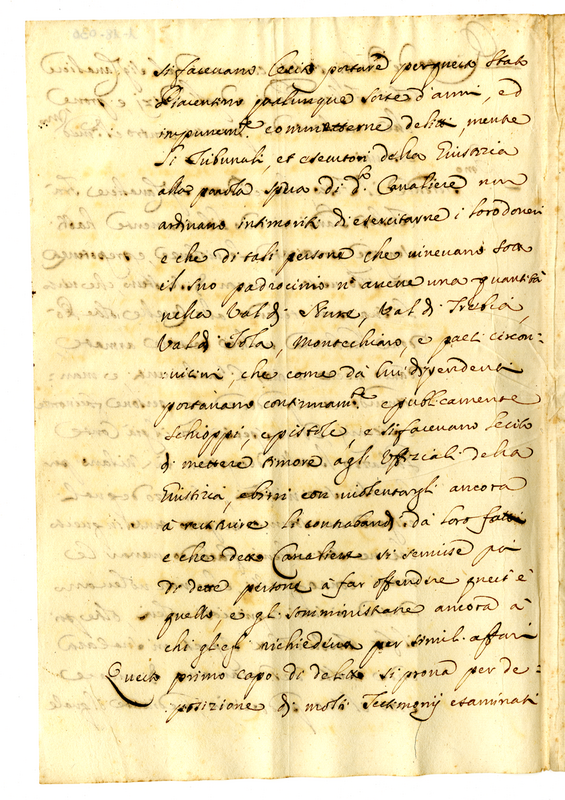 si facevano lecito portare per questo Stato
Piacentino qualunque sorte d'armi, ed
impunem.te commetterne delitti, mentre
li Tribunali, et esecutori della Giustizia
alla parola sua di d.o Cavaliere non
ardivano intimoriti di esercitarne i loro doveri
e che di tali persone che vivevano sotto
il suo padrocinio n'avene una quantità
nella Val di Nure, Val di Trebia,
Val di Tola, Montechiaro, e paesi circon-
vicini, che come da lui dipendenti
portavano continuam.te e publicamente
schioppi, e pistole, e si facevano lecito
di mettere timore agli Officiali della
Giustizia, e birri con violentargli ancora
a restituire li contrabandi da loro fatti
e che detto Cavaliere si servisse poi
di dette persone a far offendere questi è
quello, e gli somministrare ancora à
chi gli richiedeva per simili affari
Questo primo capo di delitto si prova per de-
posizione di molti Testimonij esaminati